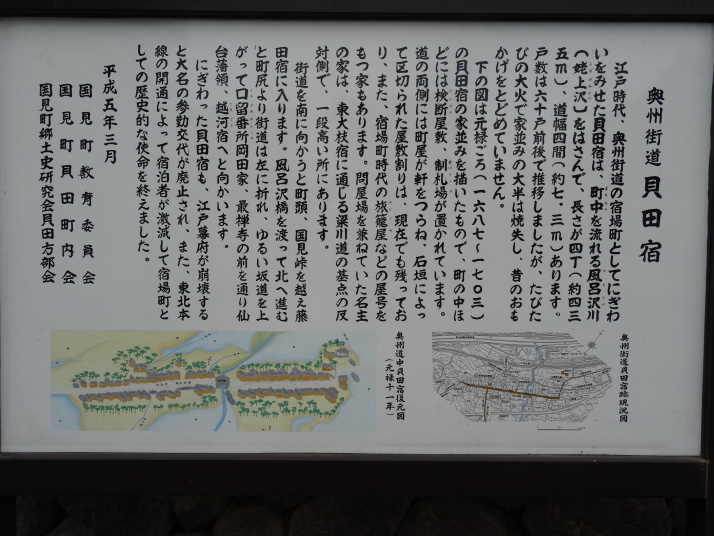 奥州街道 貝田宿
江戸時代、奥州街道の宿場町としてにぎわ
いをみせた貝田宿は、町中を流れる風呂沢川
(姥上沢)をはさんで、長さが四丁(約四三
五m)、道幅四間(約七.三m)あります。
戸数は六十戸前後で推移しましたが、たびた
びの大火で家並みの大半は焼失し、昔のおも
かげをとどめていません。
下の図は元禄ごろ(一六八七~一七〇三)
の貝田宿の家並みを描いたもので、町の中ほ
どには検断屋敷、制札場が置かれています。
道の両側には町屋が軒をつらね、石垣によっ
て区切られた屋敷割りは、現在でも残ってお
り、また、宿場町時代の旅籠屋などの屋号を
もつ家もあります。問屋場を兼ねていた名主
の家は、東大枝宿に通じる梁川道の基点の反
対側で、一段高い所にあります。
街道を南に向かうと町頭、国見峠を越え藤
田宿に入ります。風呂沢橋を渡って北へ進む
と町尻より街道は左に折れ、ゆるい坂道を上
がって口留番所岡田家、最禅寺の前を通り仙
台藩領、越河宿へと向かいます。
にぎわった貝田宿も、江戸幕府が崩壊する
と大名の参勤交代が廃止され、また、東北本
線の開通によって宿泊者が激減して宿場町と
しての歴史的な使命を終えました。
平成五年三月
国見町教育委員会
国見町貝田町内会
国見町郷土史研究会貝田方部会
奥州街道貝田宿跡現況図
奥州道中貝田宿復元図
(元禄十一年)